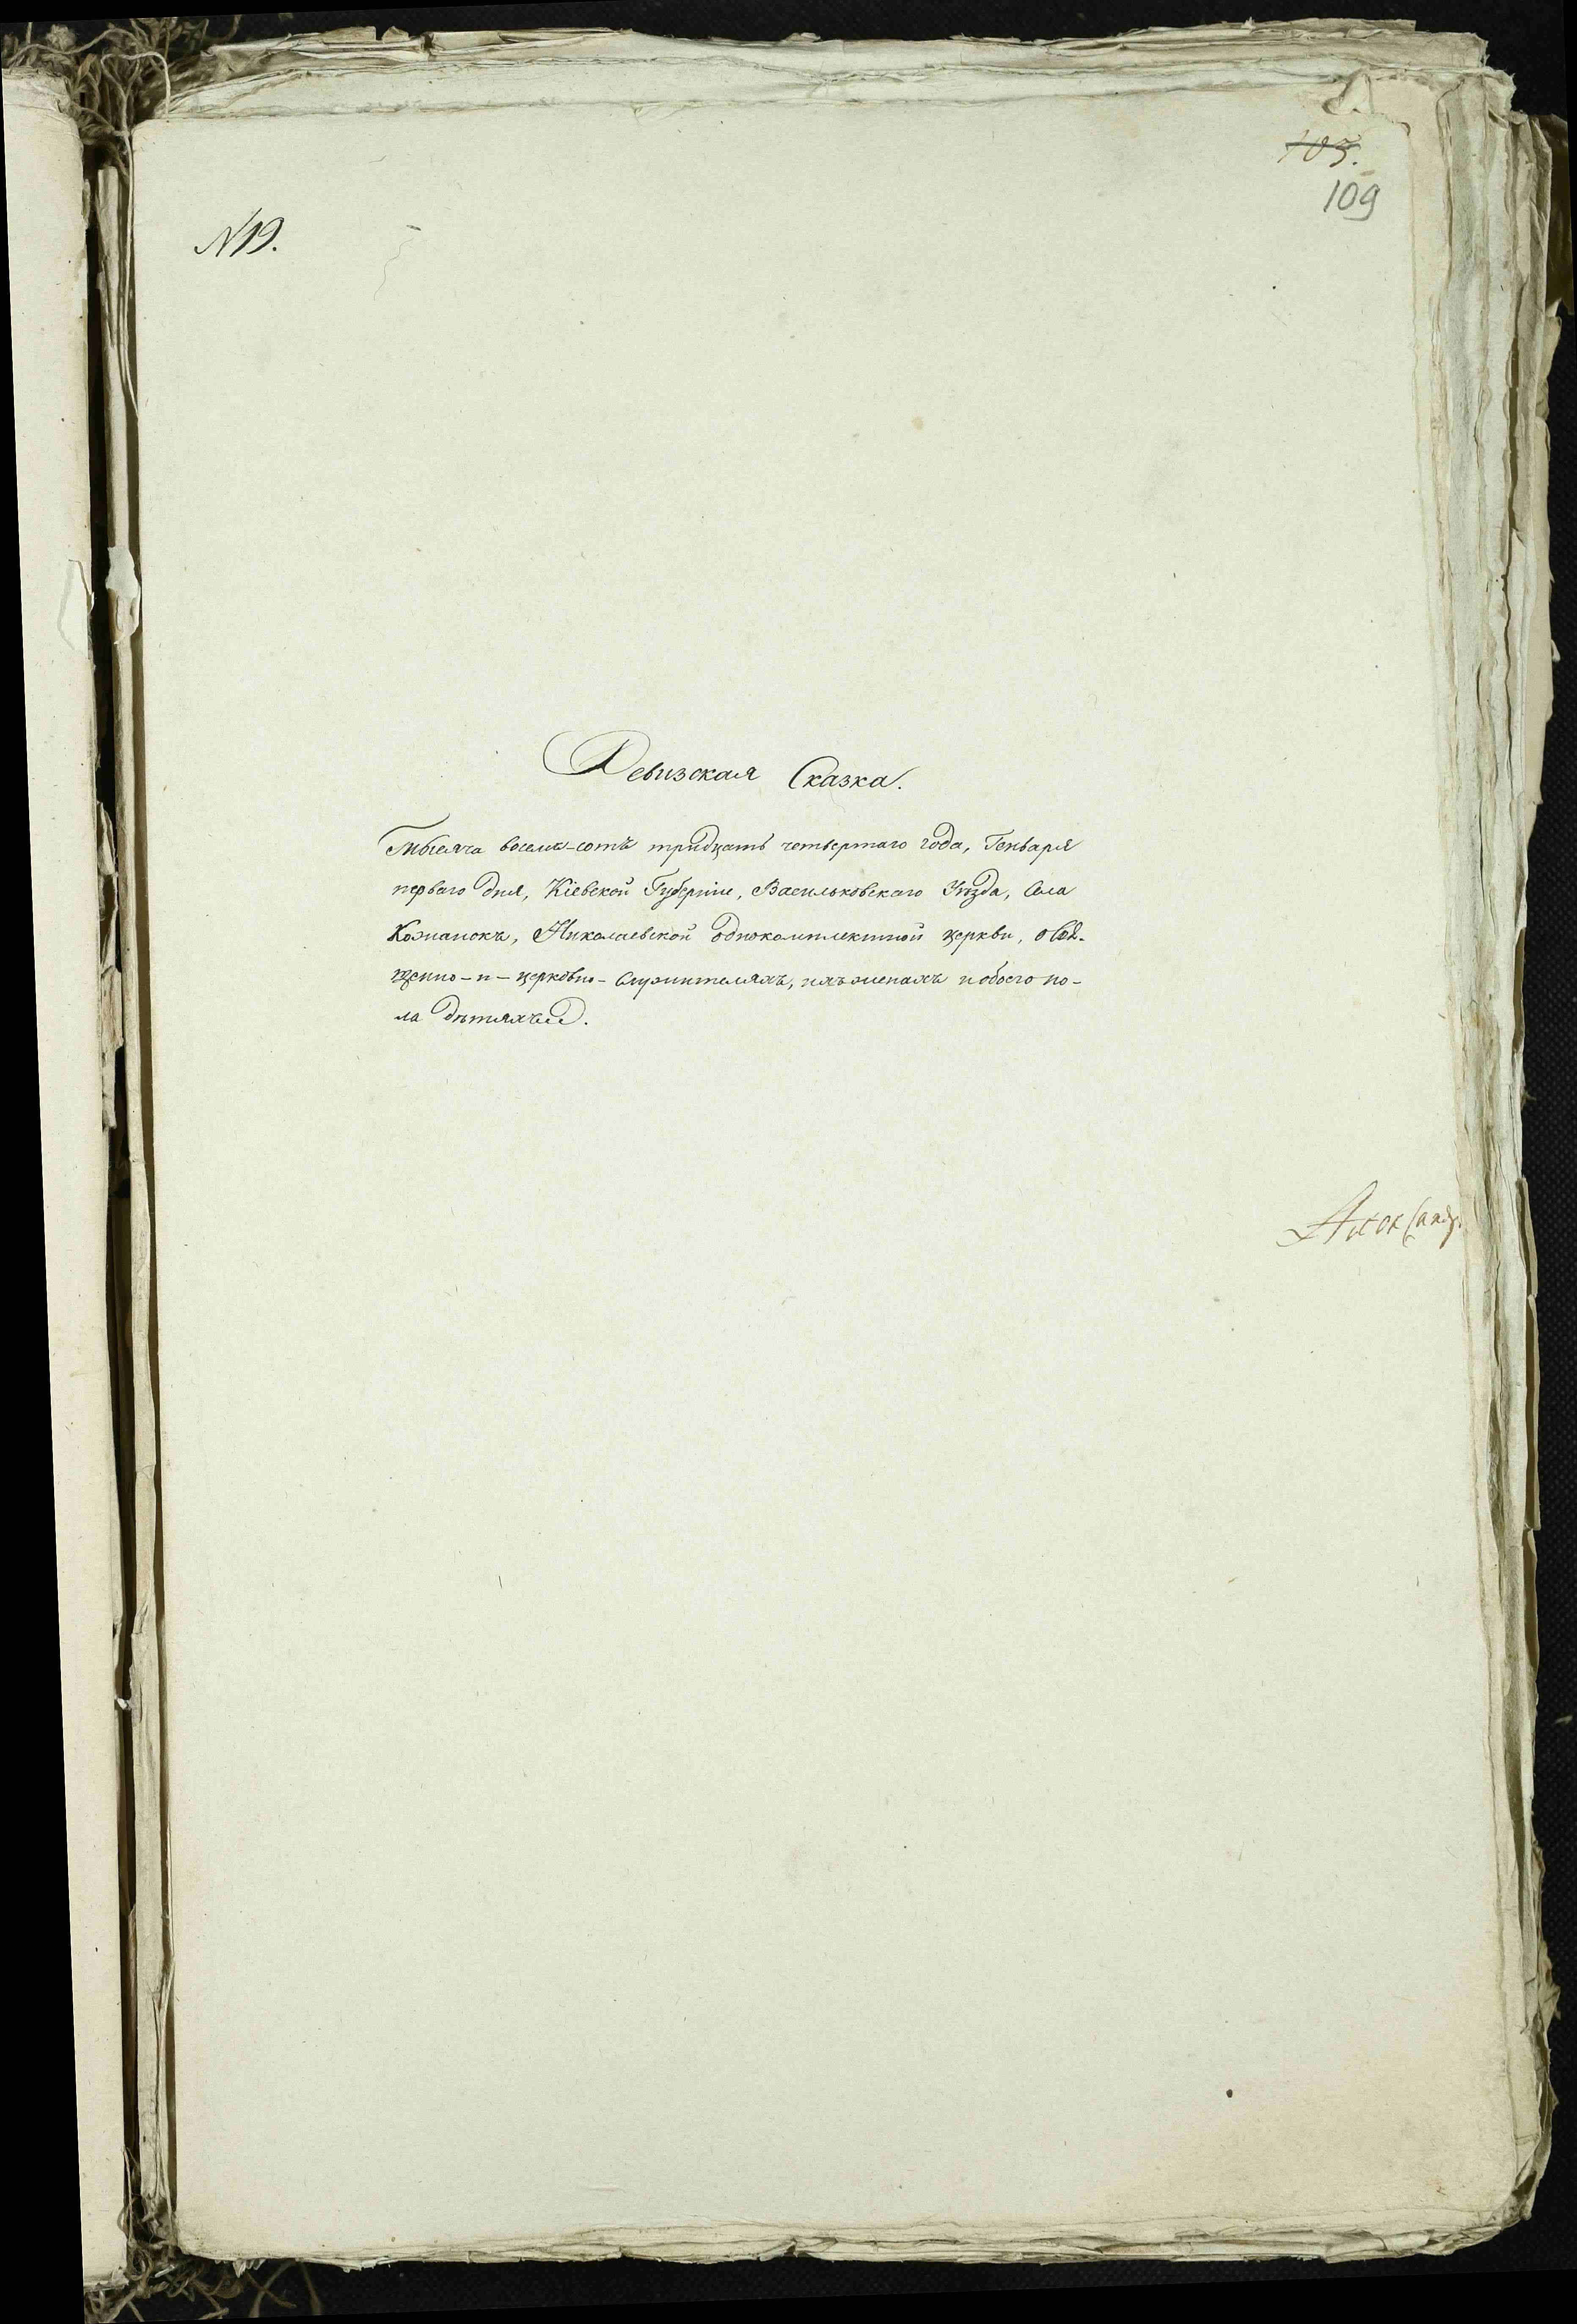 105.
109
№ 19.
Ревизская Сказка.
Тысяча восемь-сотъ тридцать четвертаго года, Генваря
перваго дня, Кіевской Губерніи, Васильковскаго Уѣзда, Села
Кожанокъ, Николаевской однокомплектной церкви, о Свя-
щенно-и-церковно-Служителяхъ, ихъ женахъ и обоего по-
ла дѣтяхъ.
Александр